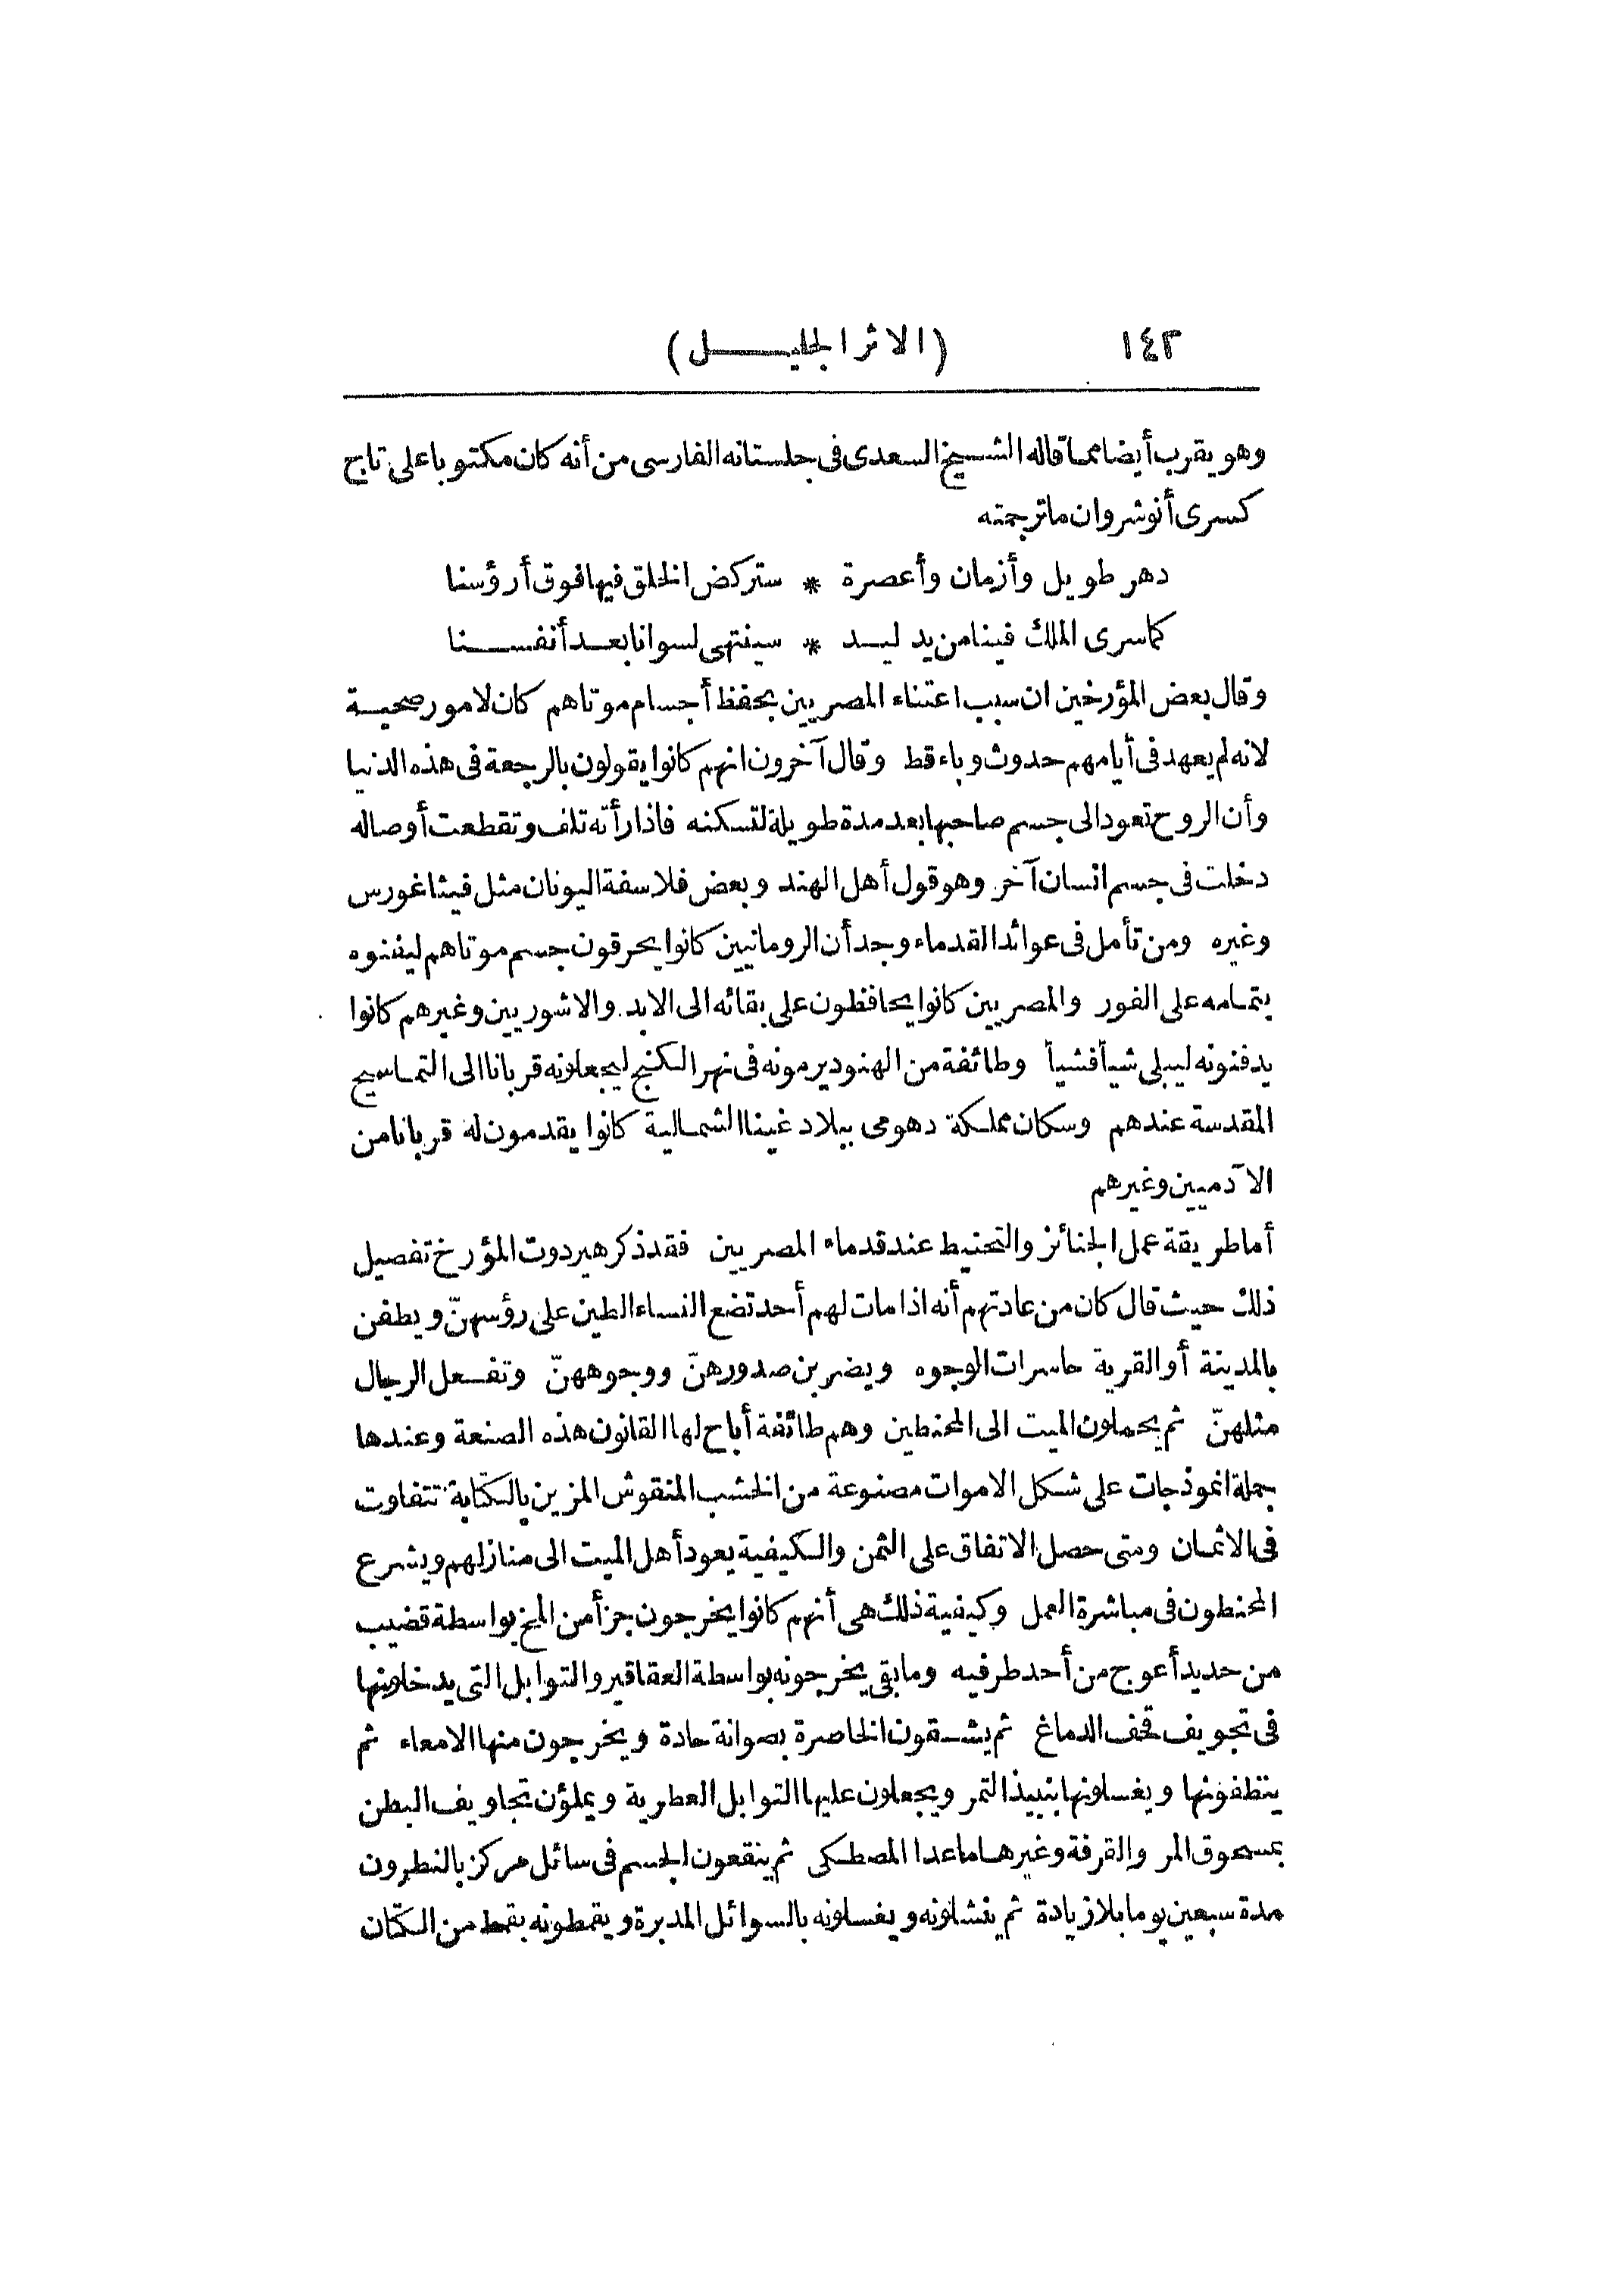 ١٤٢ (الاثر الجليل)
وهو يقرب أيضا مما قاله الشيخ السعدى فى جلستانه الفارسى من أنه كان مكتوبا على تاج
كسرى أنوشروان ما ترجمته
دهر طويل وأزمان وأعصرة * ستركض الخلق فيها فوق أرؤسنا
كما سرى الملك فينا من يد ليد * سينتهى لسوانا بعد أنفسنا
وقال بعض المؤرخين ان سبب اعتناء المصريين بحفظ أجسام موتاهم كان لامور صحية
لانه لم يعهد فى أيامهم حدوث وباء قط وقال آخرون انهم كانوا يقولون بالرجعة فى هذه الدنيا
وأن الروح تعود الى جسم صاحبها بعد مدة طويلة لتسكنه فاذا رأته تلف وتقطعت أوصاله
دخلت فى جسم انسان آخر وهو قول أهل الهند وبعض فلاسفة اليونان مثل فيثاغورس
وغيره ومن تأمل فى عوائد القدماء وجد أن الرومانيين كانوا يحرقون جسم موتاهم ليفنوه
بتمامه على الفور والمصريين كانوا يحافظون على بقائه الى الابد والاشوريين وغيرهم كانوا
يدفنونه ليبلى شيأ فشيأ وطائفة من الهنود يرمونه فى نهر الكنج ليجعلونه قربانا الى التماسيح
المقدسة عندهم وسكان مملكة دهومى ببلاد غينا الشمالية كانوا يقدمون له قربانا من
الآدميين وغيرهم
أما طريقة عمل الجنائز والتحنيط عند قدماء المصريين فقد ذكر هيردوت المؤرخ تفصيل
ذلك حيث قال كان من عادتهم أنه اذا مات لهم أحد تضع النساء الطين على رؤسهنّ ويطفن
بالمدينة أو القرية حاسرات الوجوه ويضربن صدورهنّ ووجوههنّ وتفعل الرجال
مثلهنّ ثم يحملون الميت الى المحنطين وهم طائفة أباح لها القانون هذه الصنعة وعندها
جملة انموذجات على شكل الاموات مصنوعة من الخشب المنقوش المزين بالكتابة تتفاوت
فى الاثمان ومتى حصل الاتفاق على الثمن والكيفية يعود أهل الميت الى منازلهم ويشرع
المحنطون فى مباشرة العمل وكيفية ذلك هى أنهم كانوا يخرجون جزأ من المخ بواسطة قضيب
من حديد أعوج من أحد طرفيه وما بقى يخرجونه بواسطة العقاقير والتوابل التى يدخلونها
فى تجويف قحف الدماغ ثم يشقون الخاصرة بصوانة حادة ويخرجون منها الامعاء ثم
ينظفونها ويغسلونها بنبيذ التمر ويجعلون عليها التوابل العطرية ويملؤن تجاويف البطن
بمسحوق المر والقرفة وغيرها ما عدا المصطكى ثم ينقعون الجسم فى سائل مركز بالنطرون
مدة سبعين يوما بلا زيادة ثم ينشلونه ويغسلونه بالسوائل المدبرة ويقمطونه بقمط من الكتان